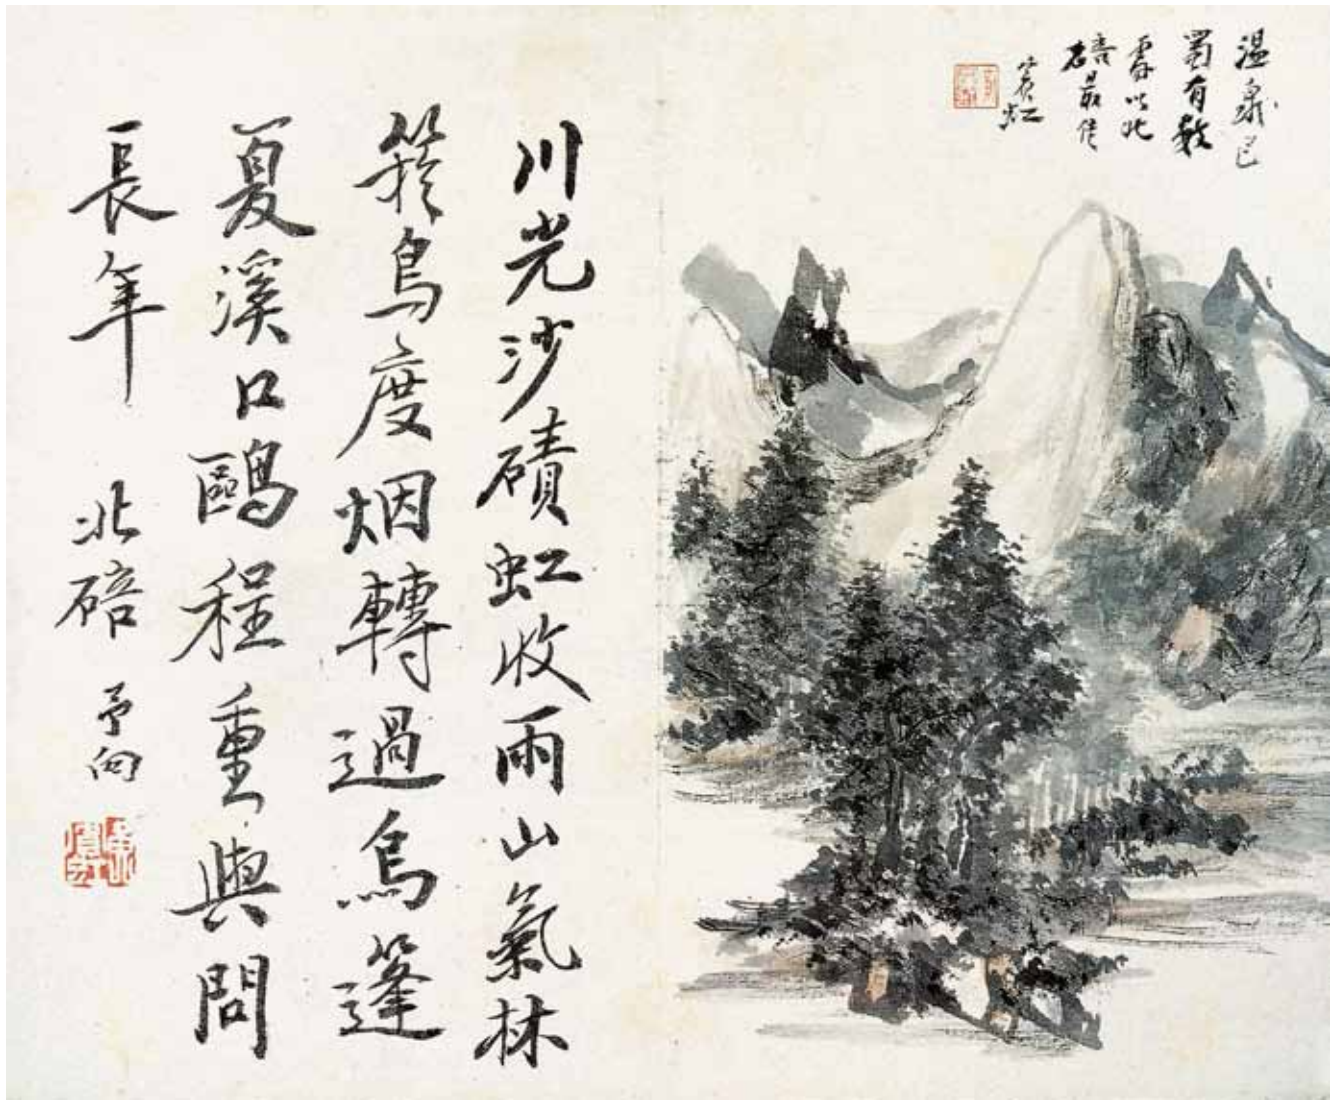 温泉巴
蜀有數
處以北
碚最佳
賓虹
川光沙磧虹收雨山氣林
箊鳥度烟轉過烏篷
夏溪口鷗程重與問
長年 北碚 予向